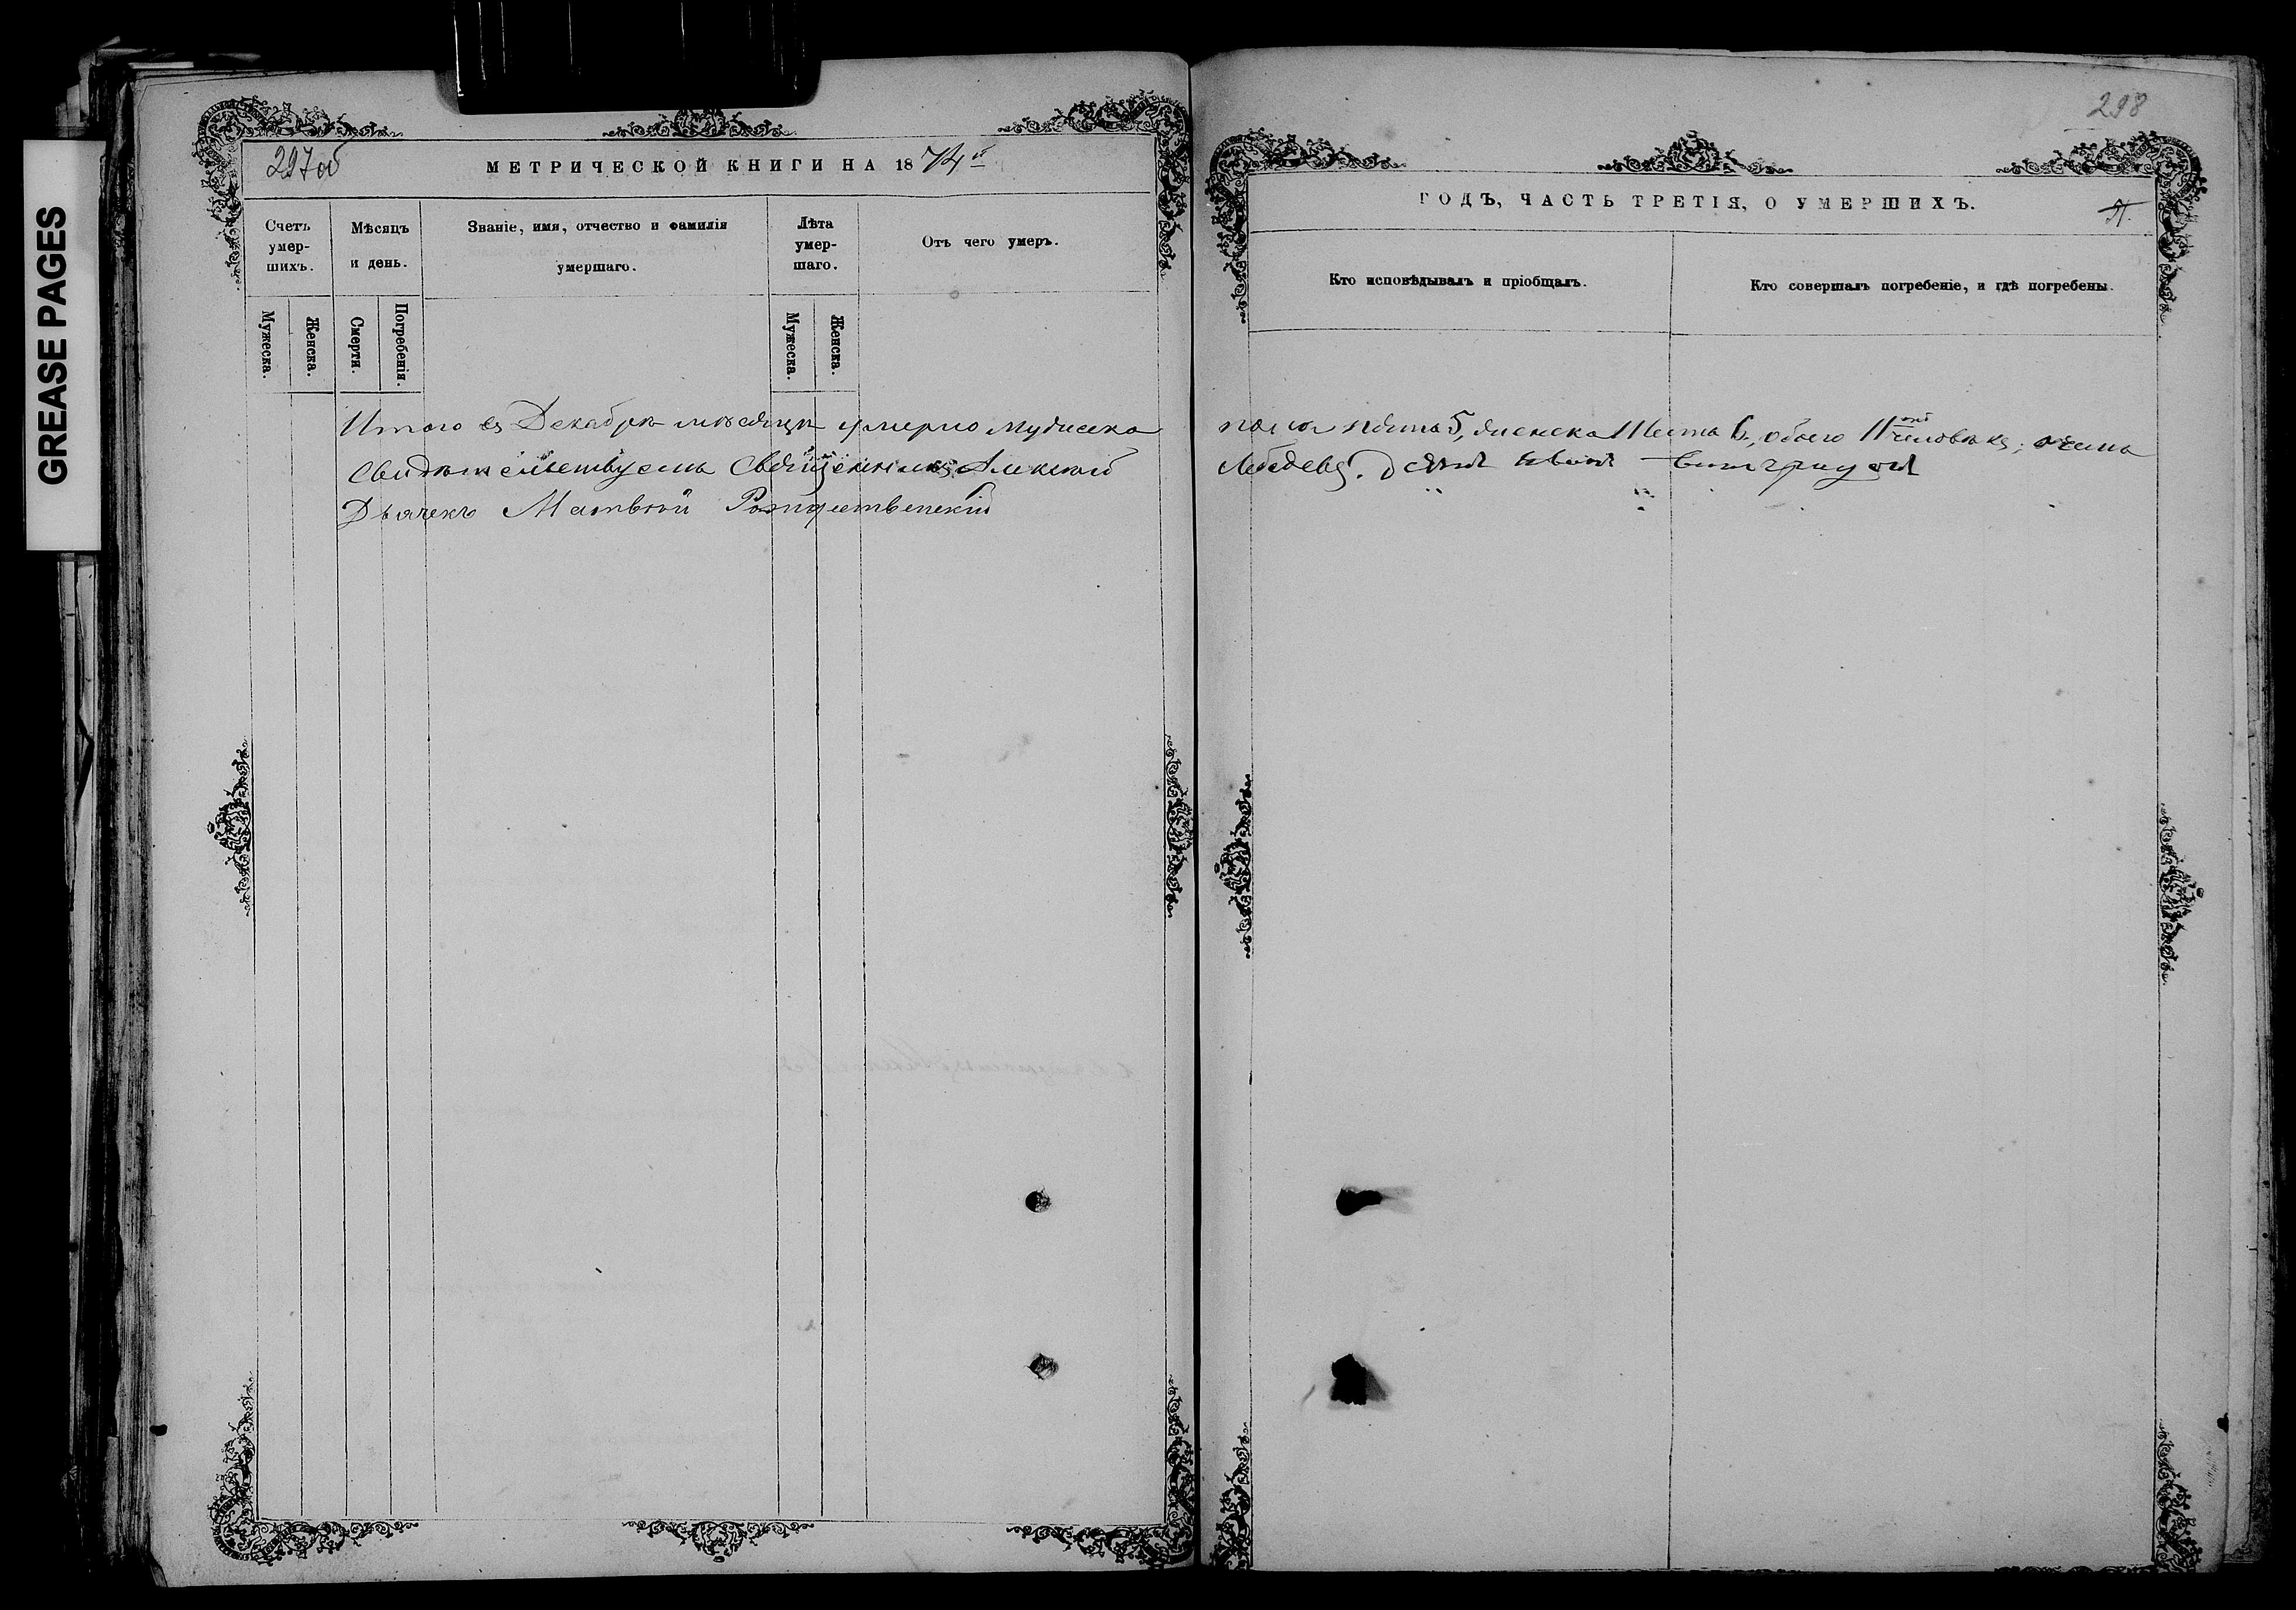 GREASE PAGES
297об
МЕТРИЧЕСКОЙ КНИГИ НА 1874й
Счетъ умер-шихъ.
Мѣсяцъ и день.
Званіе, имя, отчество и фамилія умершаго.
Лѣта умер-шаго.
Отъ чего умеръ.
Мужеска.
Женска.
Смерти.
Погребенія.
Мужеска.
Женска.
Итого въ Декабрѣ мѣсяцѣ умерло мужеска
Свидѣтельствуемъ Священникъ Алексій
Дьячекъ Матвѣй Рождественскій
298
ГОДЪ, ЧАСТЬ ТРЕТІЯ, О УМЕРШИХЪ.
Кто исповѣдывалъ и пріобщалъ.
Кто совершалъ погребеніе, и гдѣ погребены.
пола пять 5, женска шесть 6, обоего 11 человѣкъ; о чемъ
Лебедевъ.